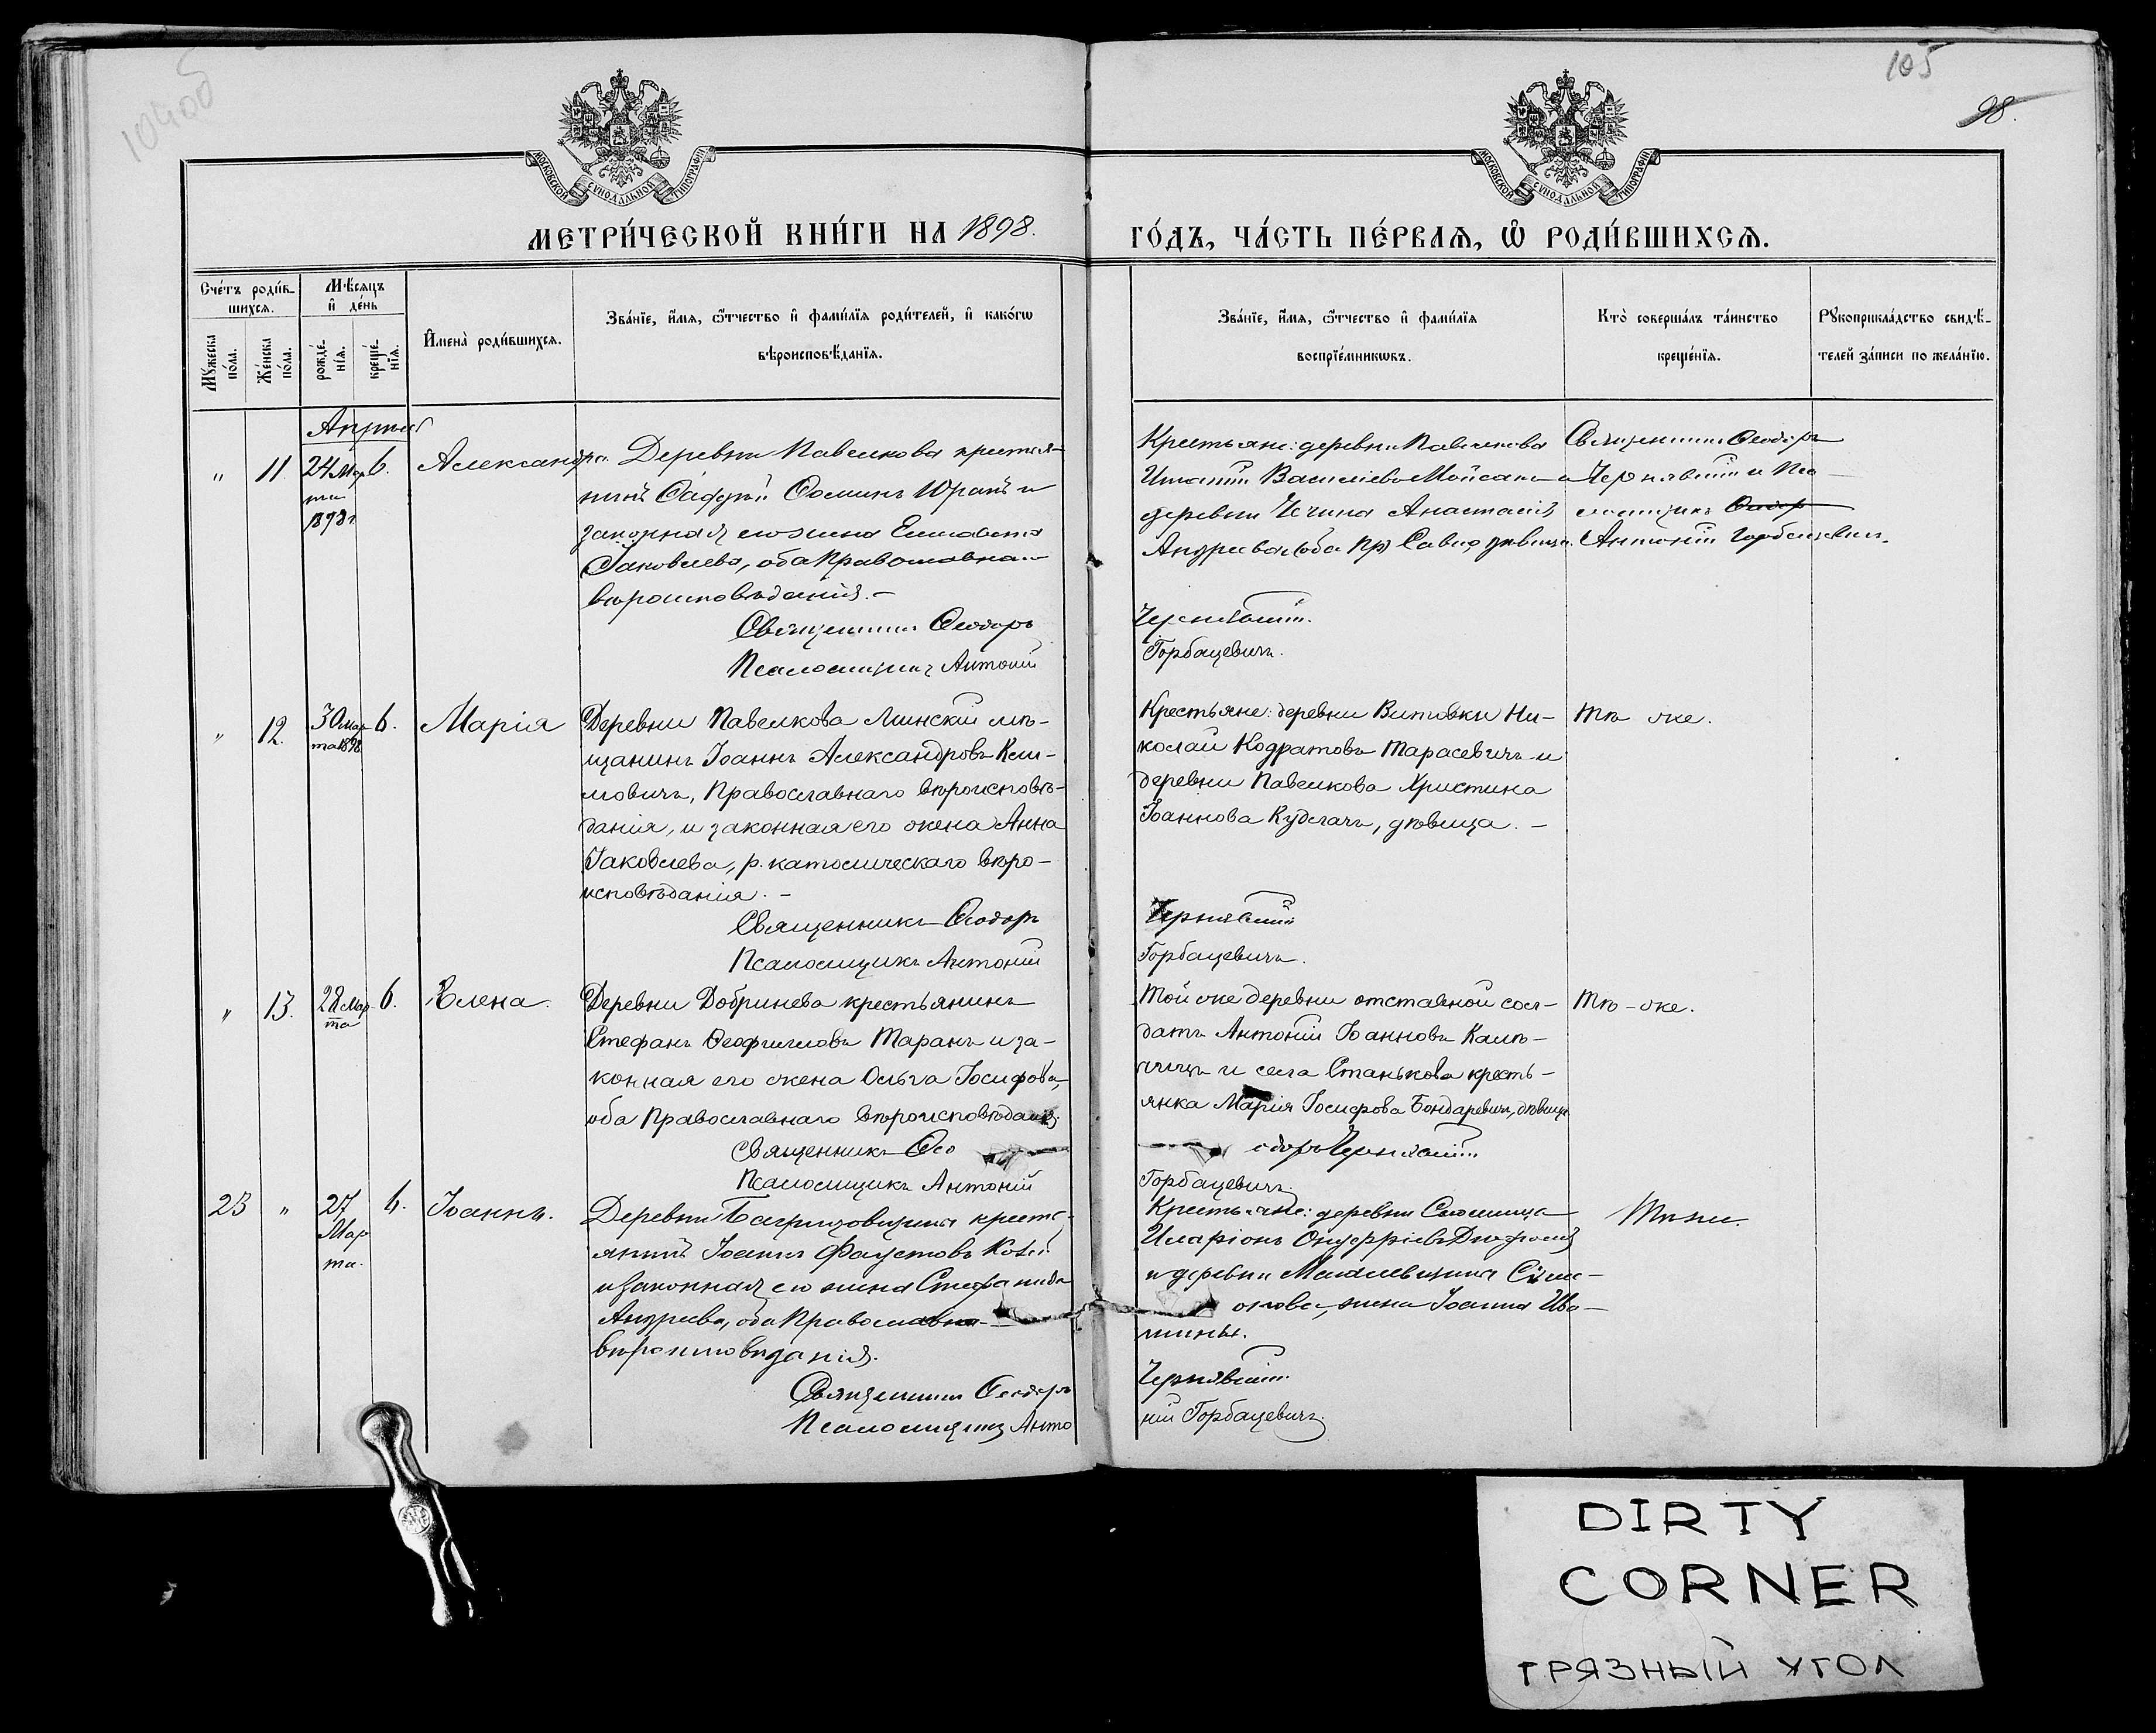 104об
105
98.
МОСКОВСКОЙ СУНОДАЛЬНОЙ ТИПОГРАФІИ
МОСКОВСКОЙ СУНОДАЛЬНОЙ ТИПОГРАФІИ
МЕТРИ́ЧЕСКОЙ КНИ́ГИ НА 1898.
ГО́ДЪ, ЧА́СТЬ ПЕ́РВАЯ, Ѿ РОДИ́ВШИХСЯ.
Сче́тъ роди́в-
шихся.
Мꙋжеска по́ла.
Же́нска по́ла.
Мѣ́сяцъ
и҆ де́нь
рожде́-
нїя.
креще́-
нїя.
И҆мена̀ роди́вшихся.
Зва́нїе, и҆́мя, ѻ҆́тчество и҆ фами́лїя роди́телей, и҆ како́гѡ
вѣроисповѣ́данїя.
Зва́нїе, и҆́мя, ѻ҆́тчество и҆ фами́лїя
воспрїе́мникѡвъ.
Кто̀ соверша́лъ та́инство
креще́нїя.
Рꙋкоприкла́дство свидѣ́-
телей за́писи по жела́нїю.
Апрѣль
" 11. 24 Мар-
та
1898 г.
6. Александра.
Деревни Павелкова крестья-
нинъ Юранъ и
законная его жена Елисавета
Яковлева, оба Православнаго
вѣроисповѣданія.–
Священникъ Ѳеодоръ
Псаломщикъ Антоній
Крестьяне: деревни Павелкова
Игнатій Васильевъ и
деревни Анастасія
Андреева (оба пр) дѣвица.
Чернявскій.
Горбацевичъ.
Священникъ Ѳеодоръ
Чернявскій и Пса-
ломщикъ
Антоній Горбацевич.
" 12. 30 Мар-
та 1898
6. Марія
Деревни Павелкова Минскій мѣ-
щанинъ Іоаннъ Александровъ Кли-
мовичъ, Православнаго вѣроисповѣ-
данія, и законная его жена Анна
Іаковлева, р. католическаго вѣро-
исповѣданія.–
Священникъ Ѳеодоръ
Псаломщикъ Антоній
Крестьяне: деревни Витовки Ни-
колай Кодратовъ Тарасевичъ и
деревни Павелкова Христина
Іоаннова Кудлачъ, дѣвица.–
Чернявскій
Горбацевичъ.
Тѣ же.
" 13. 28 Мар-
та
6. Елена.
Деревни Добринева крестьянинъ
Стефанъ Ѳеофиловъ Таранъ и за-
конная его жена Ольга Іосифова,
оба Православнаго вѣроисповѣданія.
Священникъ Ѳео
Псаломщикъ Антоній
Той же деревни отставной сол-
датъ Антоній Іоанновъ
и села Станькова кресть-
янка Марія Іосифова Бондаревич, дѣвица
одоръ Чернявскій
Горбацевичъ.
Тѣ-же.
23 " 27
Мар
та.
6. Іоаннъ.
Деревни крестья-
нинъ Іоаннъ Фаустовъ
и законная его жена Стефанида
Андреева, оба Православнаго
вѣроисповѣданія.
Священникъ Ѳеодоръ
Псаломщикъ Анто
Крестьяне: деревни
Иларіонъ Онуфріевъ
и деревни
жена Іоанна
Чернявскій
ній Горбацевичъ.
Тѣ же.
DIRTY
CORNER
ГРЯЗНЫЙ УГОЛ